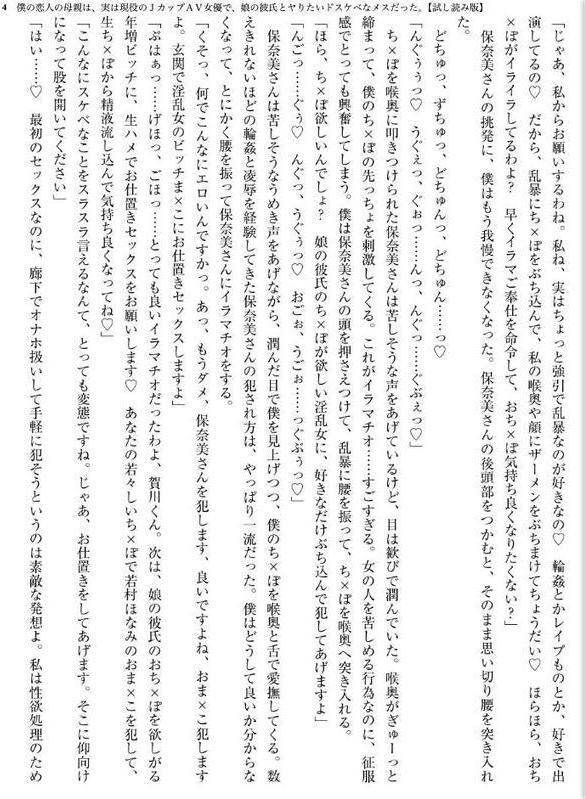 4　僕の恋人の母親は、実は現役のＪカップＡＶ女優で、娘の彼氏とヤりたいドスケベなメスだった。【試し読み版】
「じゃあ、私からお願いするわね。私ね、実はちょっと強引で乱暴なのが好きなの♡　輪姦とかレイプものとか、好きで出
演してるの♡　だから、乱暴にち×ぽをぶち込んで、私の喉奥や顔にザーメンをぶちまけてちょうだい♡　ほらほら、おち
×ぽがイライラしてるわよ？　早くイラマご奉仕を命令して、おち×ぽ気持ち良くなりたくない？」
　保奈美さんの挑発に、僕はもう我慢できなくなった。保奈美さんの後頭部をつかむと、そのまま思い切り腰を突き入れ
た。
　どちゅっ、ずちゅっ、どちゅんっ、どちゅん……っ♡
「んぐぅぅっ♡　うぐぇっ、ぐぉっ……んっ、んぐっ……ぐぶぇっ♡」
　ち×ぽを喉奥に叩きつけられた保奈美さんは苦しそうな声をあげているけど、目は歓びで潤んでいた。喉奥がぎゅーっと
締まって、僕のち×ぽの先っちょを刺激してくる。これがイラマチオ……すごすぎる。女の人を苦しめる行為なのに、征服
感でとっても興奮してしまう。僕は保奈美さんの頭を押さえつけて、乱暴に腰を振って、ち×ぽを喉奥へ突き入れる。
「ほら、ち×ぽ欲しいんでしょ？　娘の彼氏のち×ぽが欲しい淫乱女に、好きなだけぶち込んで犯してあげますよ」
「んごっ……ぐぅ♡　んぐっ、うぐぅっ♡　おごぉ、うごぉ……っぐぶぅっ♡」
　保奈美さんは苦しそうなうめき声をあげながら、潤んだ目で僕を見上げつつ、僕のち×ぽを喉奥と舌で愛撫してくる。数
えきれないほどの輪姦と凌辱を経験してきた保奈美さんの犯され方は、やっぱり一流だった。僕はどうして良いか分からな
くなって、とにかく腰を振って保奈美さんにイラマチオをする。
「くそっ、何でこんなにエロいんですかっ。あっ、もうダメ、保奈美さんを犯します、良いですよね、おま×こ犯します
よ。玄関で淫乱女のビッチま×こにお仕置きセックスしますよ」
「ぷはぁっ……げほっ、ごほっ……とっても良いイラマチオだったわよ、賀川くん。次は、娘の彼氏のおち×ぽを欲しがる
年増ビッチに、生ハメでお仕置きセックスをお願いします♡　あなたの若々しいち×ぽで若村ほなみのおま×こを犯して、
生ち×ぽから精液流し込んで気持ち良くなってね♡」
「こんなにスケベなことをスラスラ言えるなんて、とっても変態ですね。じゃあ、お仕置きをしてあげます。そこに仰向け
になって股を開いてください」
「はい……♡　最初のセックスなのに、廊下でオナホ扱いして手軽に犯そうというのは素敵な発想よ。私は性欲処理のため